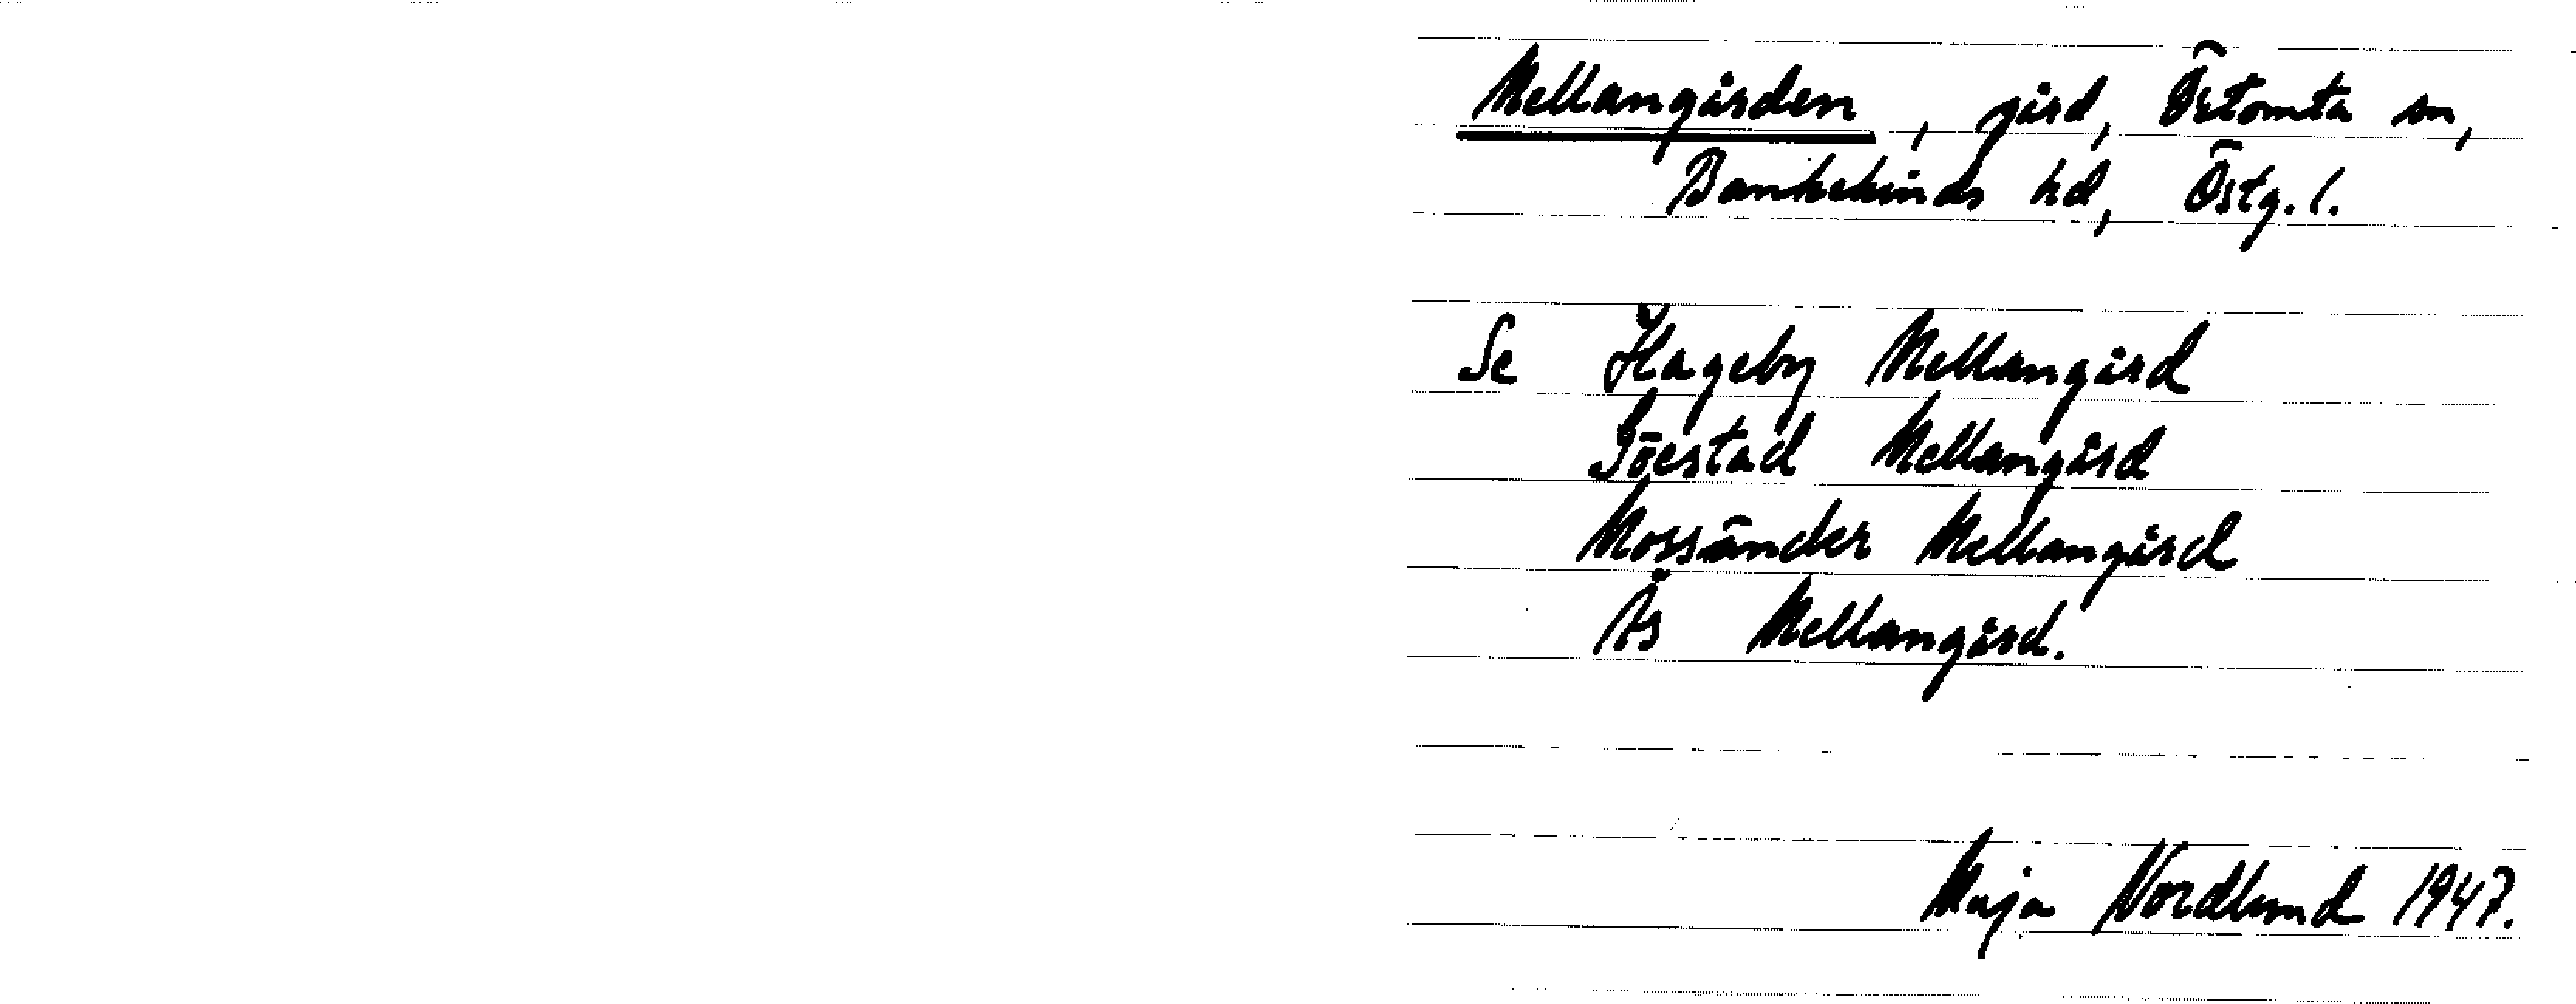 Mellangården, gård, Örtomta sn,
Bankekinds hd, Östg. l.
Se Hageby Mellangård
Göestad Mellangård
Mossänder Mellangård
Ås Mellangård.
Maja Nordlund 1947.